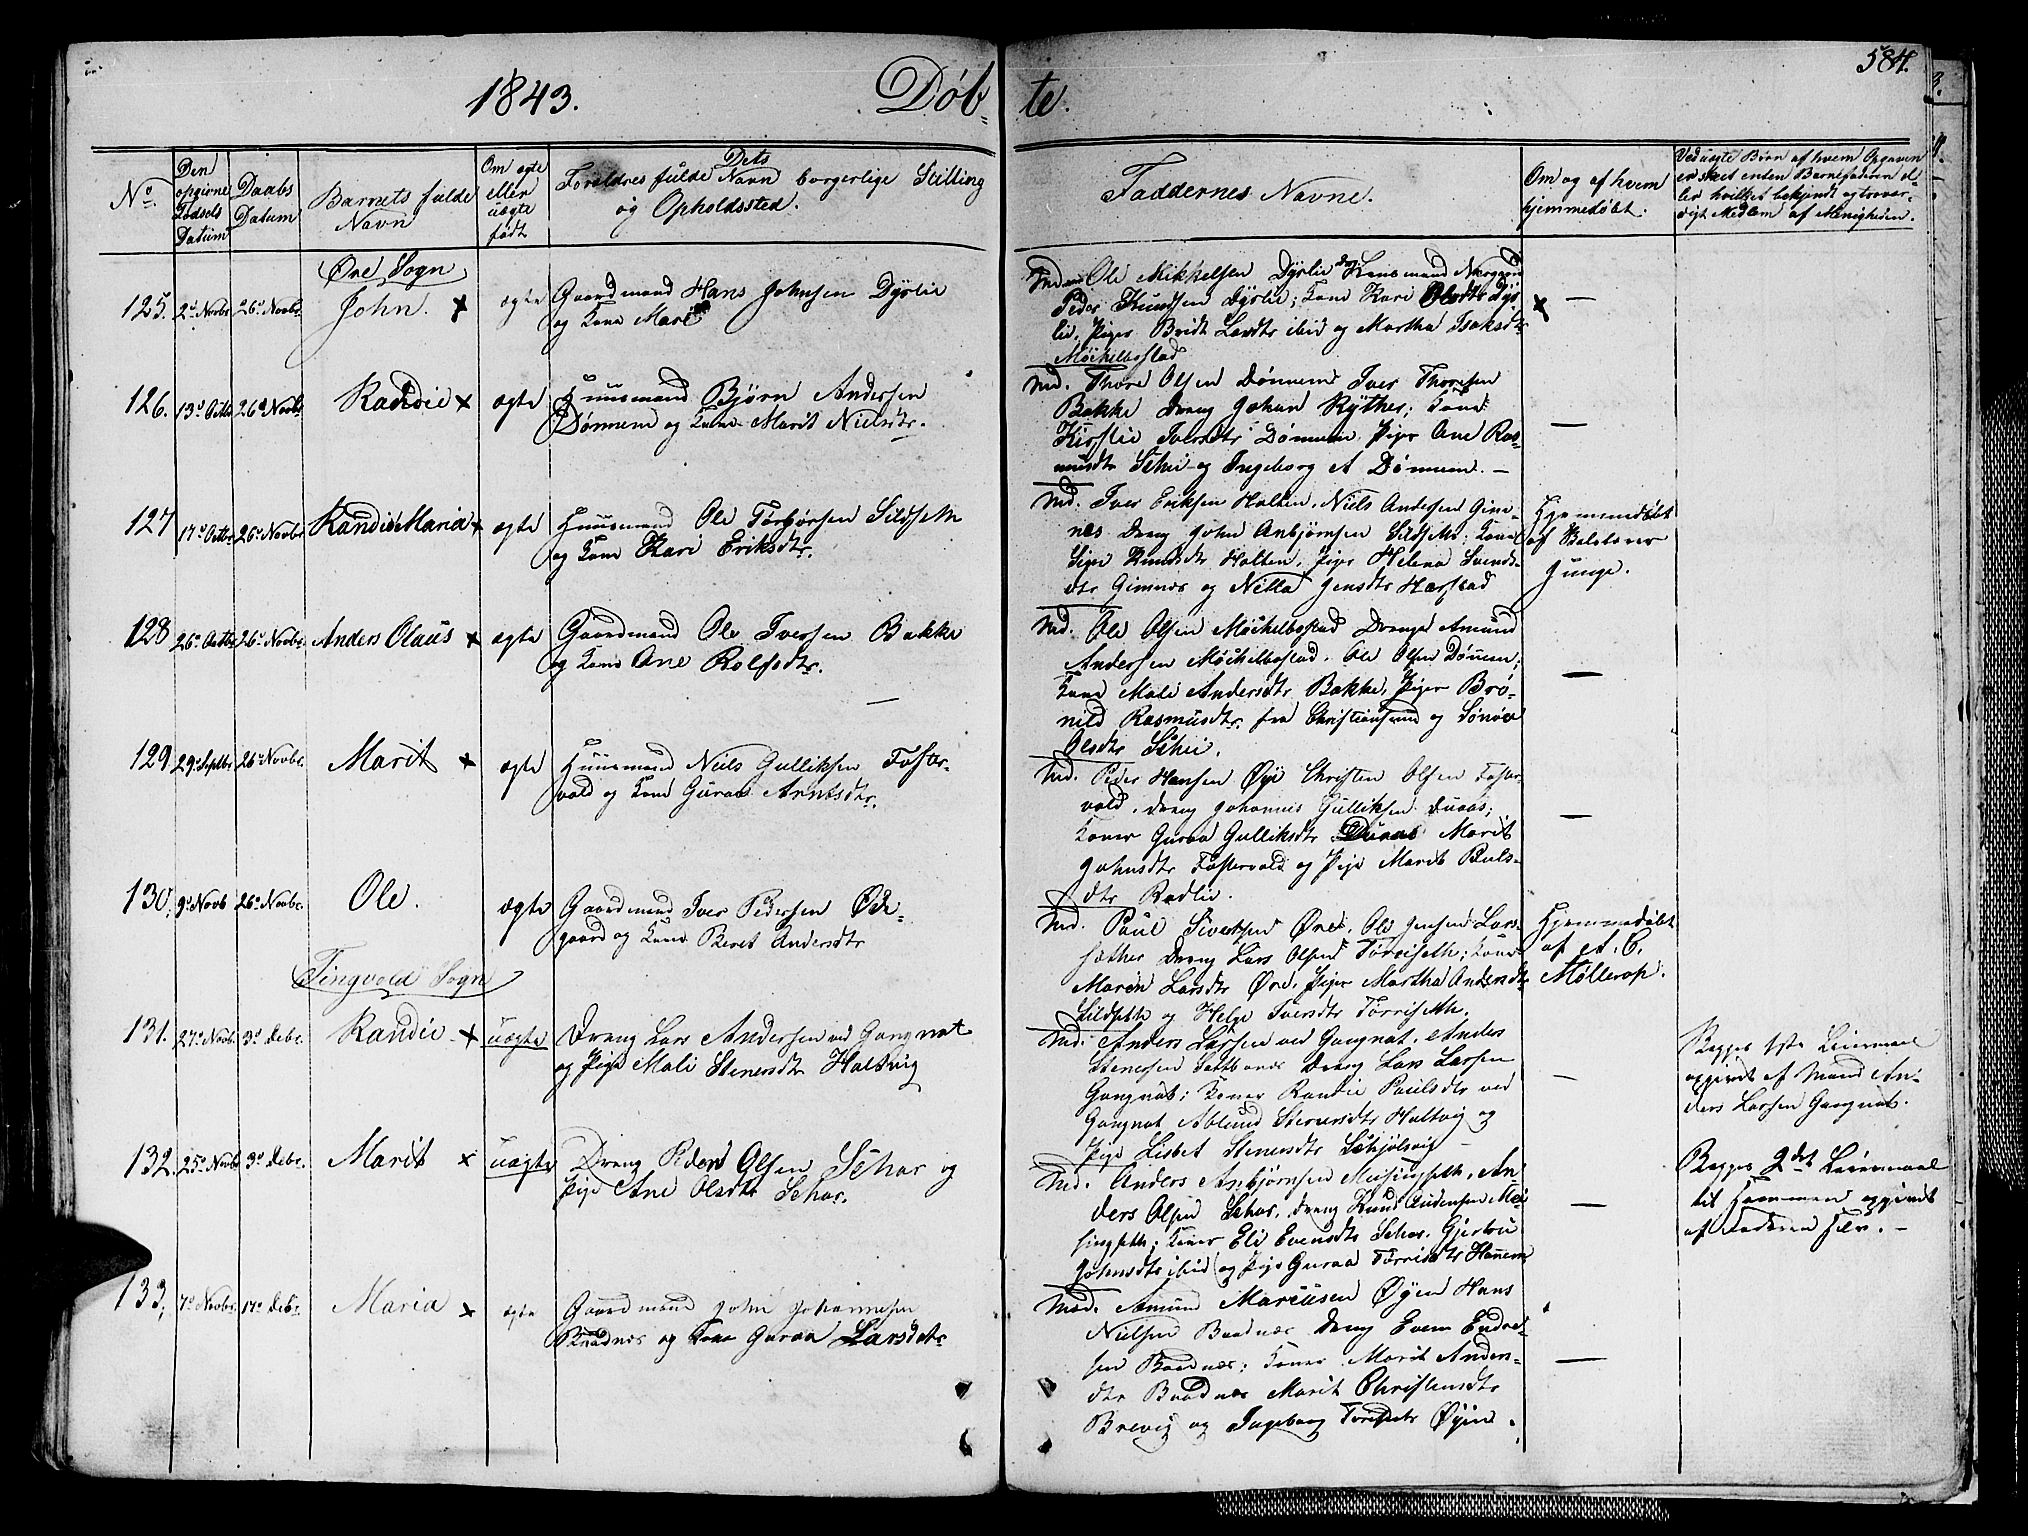 584.
1843. Døb=
te.
No
Den opgivne Fødsels Datum
Daabs Datum
Barnets fulde Navn
Om ægte eller uægte født
Forældres fulde Navn Dets borgerlige Stilling
og Opholdssted.
Faddernes Navne.
Om og af hvem
hjemmedøbt:
Ved uægte Børn af hvem Opgaven
er skeet enten Barnefaderen el-
ler hvilket bekjendt og trovær-
digt Medlem af Menigheden.
Øre Sogn
125. 2d Novbr 26d Novbr. John. x ægte Gaardmand Hans Johnsen Dyslie
og Kone Mari
Ole Mikkelsen Dyslie
Peder Knudsen Dyslie; Kone Kari Olsdtr Dys
lie, Piger Bridt Larsdtr ibid og Martha Isaksdtr
Möckelbostad
—
126. 13d Octbr 26d Novbr. Randie x ægte Huusmand Bjørn Andersen
Dønnem og Kone Marit Nielsdtr.
Md. Thore Olsen Dønnem Iver Thoresen
Bakke Dreng Johan Rÿther; Kone
Kirstie Iversdtr Dønnem, Piger Ane Ras-
musdtr Schei og Ingeborg A Dønnem. —
—
127 17d Octbr. 26d Novbr Randie Maria x ægte Huusmand Ole Torbørsen Sildseth
og Kone Kari Eriksdtr.
Md. Iver Eriksen Holten, Niels Andersen Gim-
nes. Dreng John Anbjørnsen Sildseth; Kone
Siger Knudsdtr Holten, Piger Helena Svends-
dtr Gimnæs og Nilla Jensdtr Harstad
Hjemmedøbt
af
Junge.
128 26d Octbr 26d Novbr. Anders Olaüs x ægte Gaardmand Ole Iversen Bakke
og Kone Ane Rolfsdtr.
Md. Ole Olsen Möckelbostad Drenge Amund
Andersen Möckelbostad. Ole Olsen Dönnem;
Kone Mali Andersdtr Bakke, Piger Brø-
nild Rasmusdtr. fra Christiansund og Sönöve
Olsdtr Schei.
—
129. 29d Septbr. 26d Novbr. Marit x ægte Huusmand Niels Gulliksen Foster-
vold og Kone Guraa Arntsdtr.
Md. Peder Hansen Øye Christen Olsen Foster-
vold. Dreng Johannes Gulliksen Duaas;
Koner Guraa Gulliksdtr Duaas Marit
Johnsdtr Fostervold og Pige Marit Pauls-
dtr Rødlie.
—
130. 9d Novb 26d Novbr. Ole. ægte Gaardmand Iver Pedersen Øde-
gaard og Kone Beret Andersdtr
Md. Paul Sivertsen Øre, Ole Jensen Lars-
sæther Dreng Lars Olsen Torriseth; Kone
Maren Larsdtr Øre, Piger Martha Andersdtr
Sildseth og Helge Iversdtr Torriseth.
Hjemmedøbt
af A. C.
Møllerop.
Tingvold Sogn
131. 27d Novb. 3d Debr. Randie x uægte Dreng Lars Andersen ved Gangnat
og Pige Mali Stenersdtr Holtvig
Md. Anders Larsen ved Gangnat. Anders
Stenersen Dreng Lars Larsen
Gangnat; Koner Randie Paulsdtr ved
Gangnat Ablund Stenersdtr Holtvig og
Pige Lisbet Stenersdtr Schjølsvig
—
Begges 1ste Leiermaal
opgivet af Mand An-
ders Larsen Gangnat.
132. 25d Novb. 3d Debr. Marit x uægte Dreng Peder Olsen Schar og
Pige Ane Olsdtr Schar.
Md. Anders Anbjørnsen Meisingseth, An-
ders Olsen Schar, Dreng Knud Andersen Mei-
singseth; Koner Eli Evensdtr Schar, Gjertru
Johnsdtr ibid og Pige Guraa Torrisdtr Hanem
—
Begges 2det Leiermaal
til Sammen opgivet
af Faderen selv. —
133. 7d Novbr. 17d Debr. Maria x ægte Gaardmand John Johannesen
Baadnæs og Kone Guraa Larsdatr
Md. Amund Marcusen Øyen Hans
Nielsen Baadnæs Dreng Even Endre-
sen Baadnæs; Koner Marit Anders-
dtr Baadnæs Marit Christensdtr
Brevig og Ingeborg Toresdtr Øyen.
—